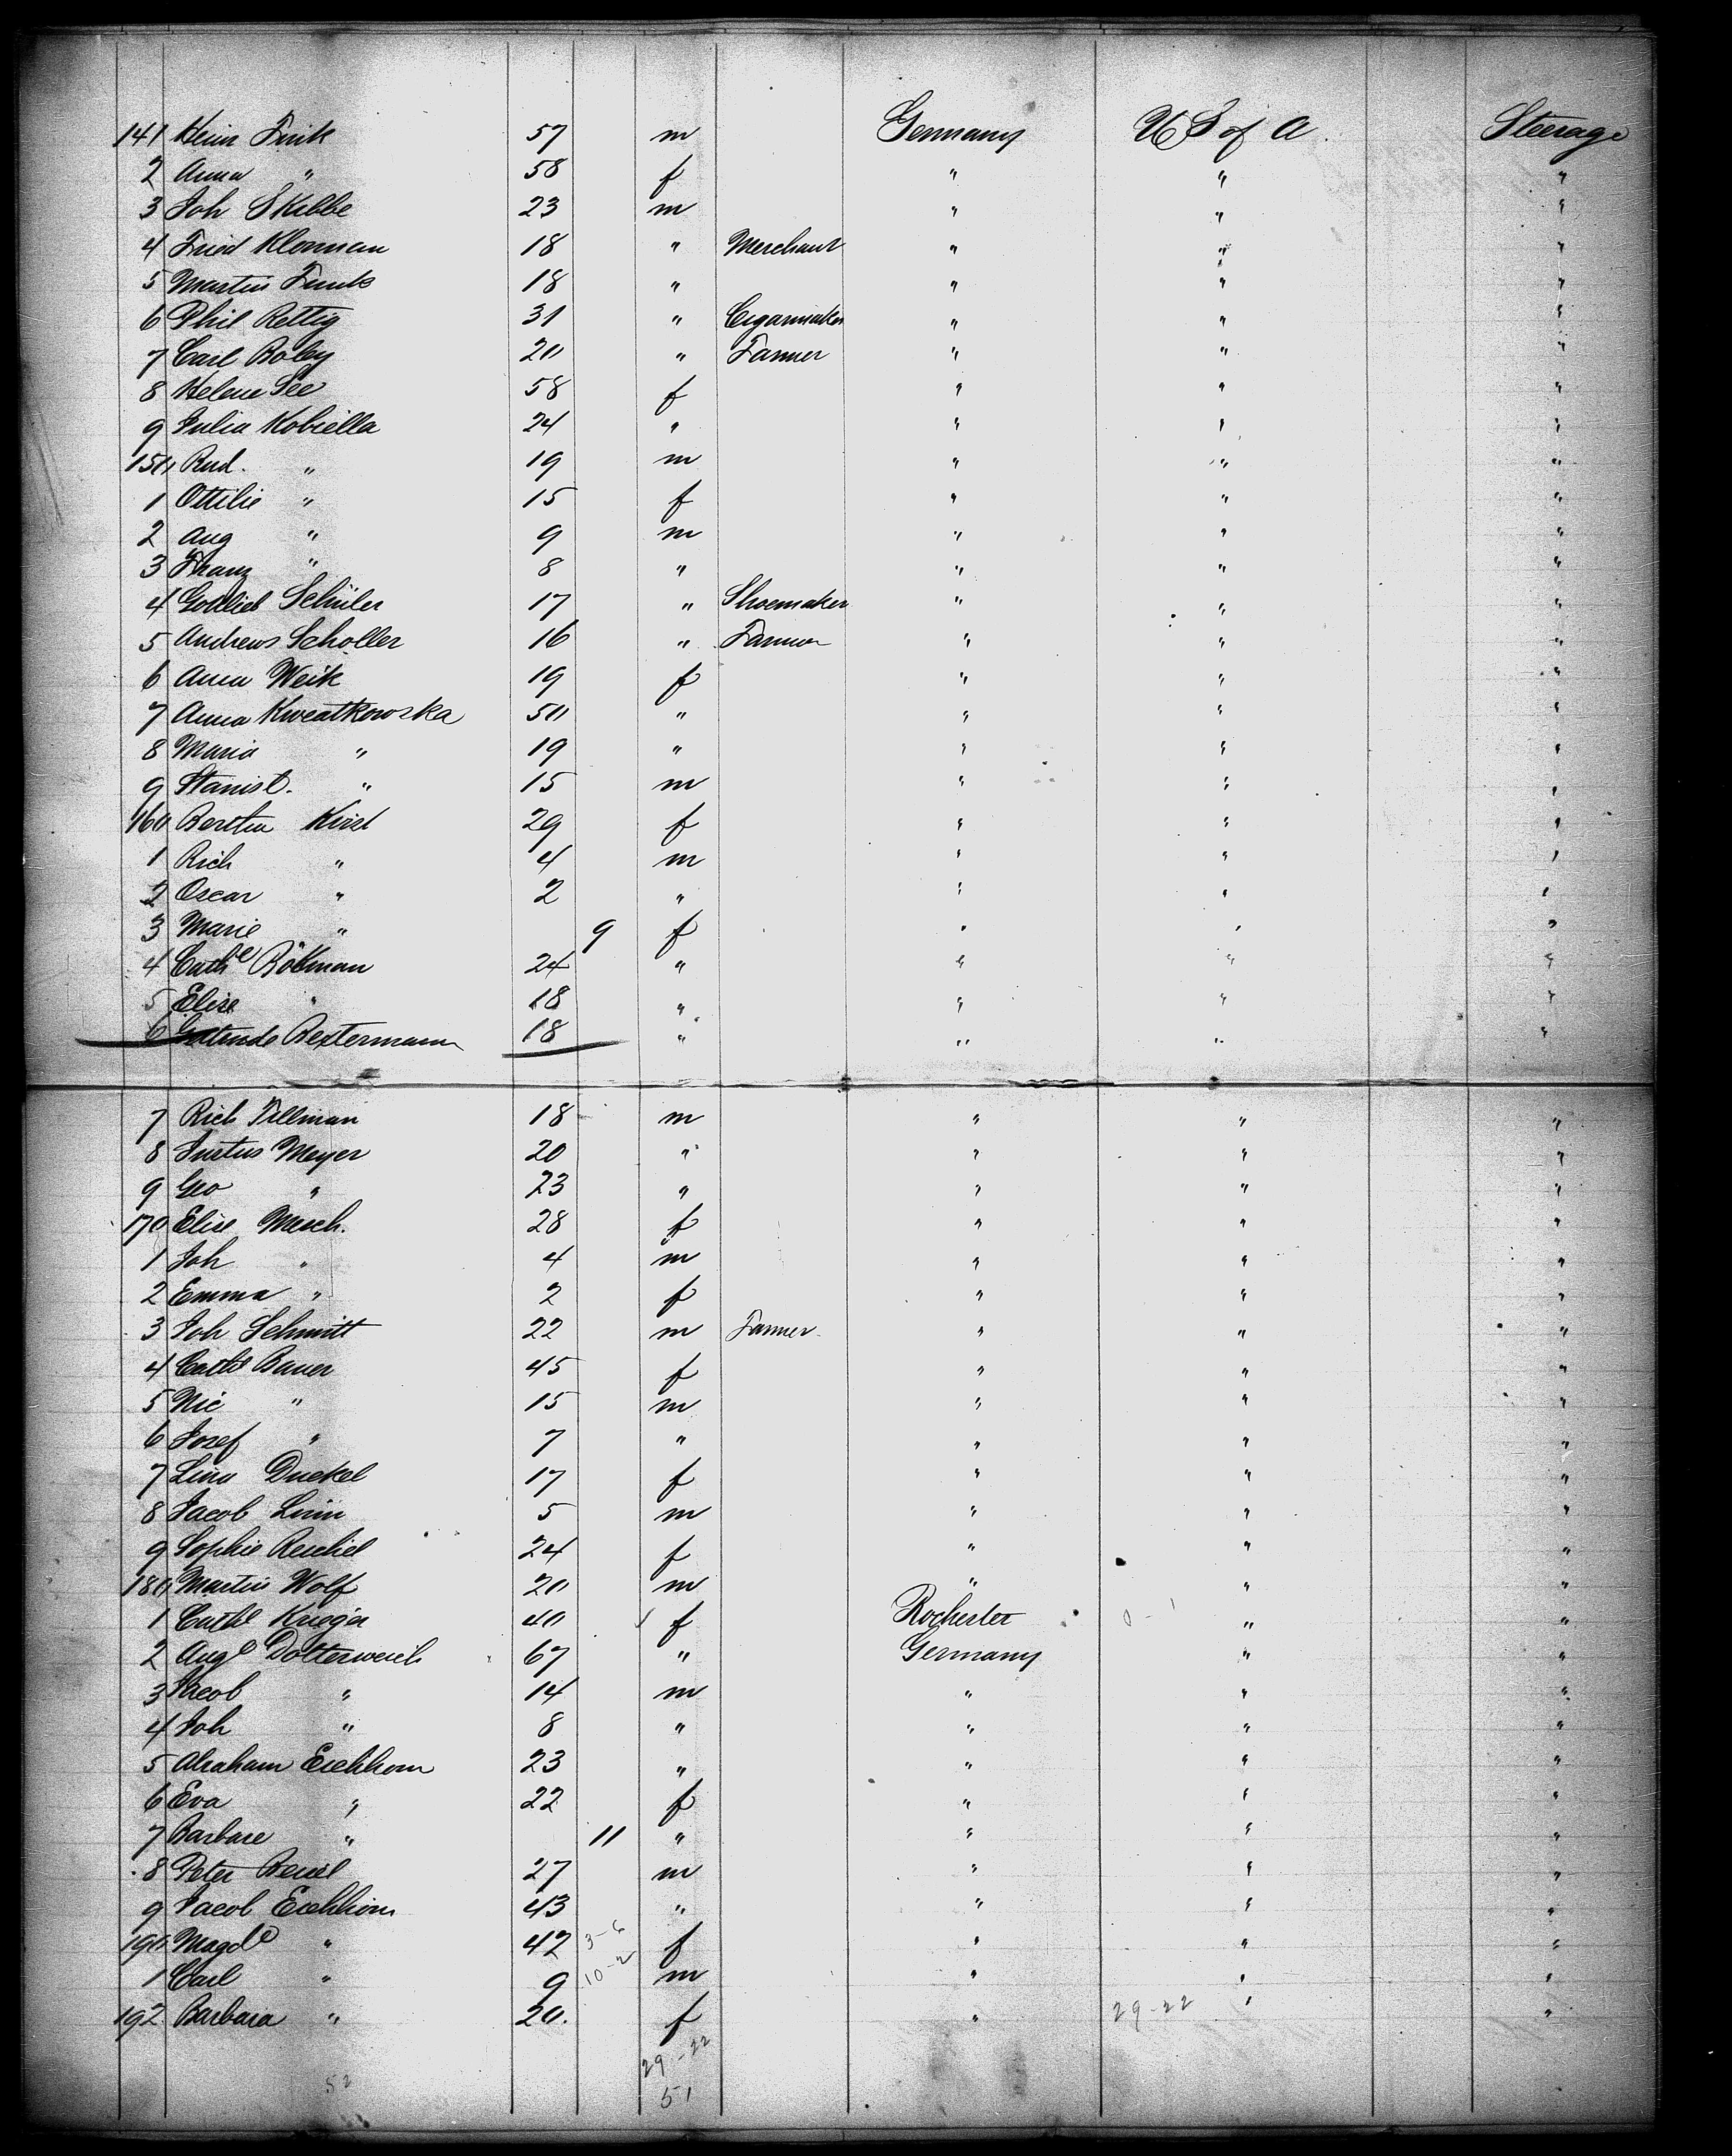 141 Heinr Funk 57 m Germany U S of A. Steerage
2 Anna " 58 f " " "
3 Joh Skibbe 23 m " " "
4 Fried Klonman 18 " Merchant " " "
5 Martin Funk 18 " " " "
6 Phil Rettig 31 " Cigarmaker " " "
7 Carl Boley 20 " Farmer " " "
8 Helene See 58 f " " "
9 Julia Kobiella 24 " " " "
150 Rud. " 19 m " " "
1 Ottilie " 15 f " " "
2 Aug " 9 m " " "
3 Franz " 8 " " " "
4 Gottlieb Schüler 17 " Shoemaker " " "
5 Andreas Scholler 16 " Farmer " " "
6 Anna Weik 19 f " " "
7 Anna Kweatkowska 50 " " " "
8 Maria " 19 " " " "
9 Stanisl. " 15 m " " "
160 Bertha Kirst 29 f " " "
1 Rich " 4 m " " "
2 Oscar " 2 " " " "
3 Marie " 9 f " " "
4 Cathe Bökman 24 " " " "
5 Elise " 18 " " " "
6 Bextermann 18 " " " "
7 Rich Tillman 18 m " " "
8 Justus Meyer 20 " " " "
9 Geo " 23 " " " "
170 Elise Mesch. 28 f " " "
1 Joh " 4 m " " "
2 Emma " 2 f " " "
3 Joh Schmitt 22 m Farmer " " "
4 Cathe Bauer 45 f " " "
5 Nic " 15 m " " "
6 Josef " 7 " " " "
7 Lina Duckel 17 f " " "
8 Jacob Linn 5 m " " "
9 Sophie Reichel 24 f " " "
180 Martin Wolf 20 m " " "
1 Cathe Krieger 40 f Rochester " "
2 Auge Dotterweich 67 " Germany " "
3 Jacob " 14 m " " "
4 Joh " 8 " " " "
5 Abraham Eichhorn 23 " " " "
6 Eva " 22 f " " "
7 Barbare " 11 " " " "
8 Peter 27 m " " "
9 Jacob Eichhorn 43 " " " "
190 Magde " 42 3-6 f " " "
1 Carl " 9 10-2 m " " "
192 Barbara " 20. f " 29-22 " "
29-22
52 51